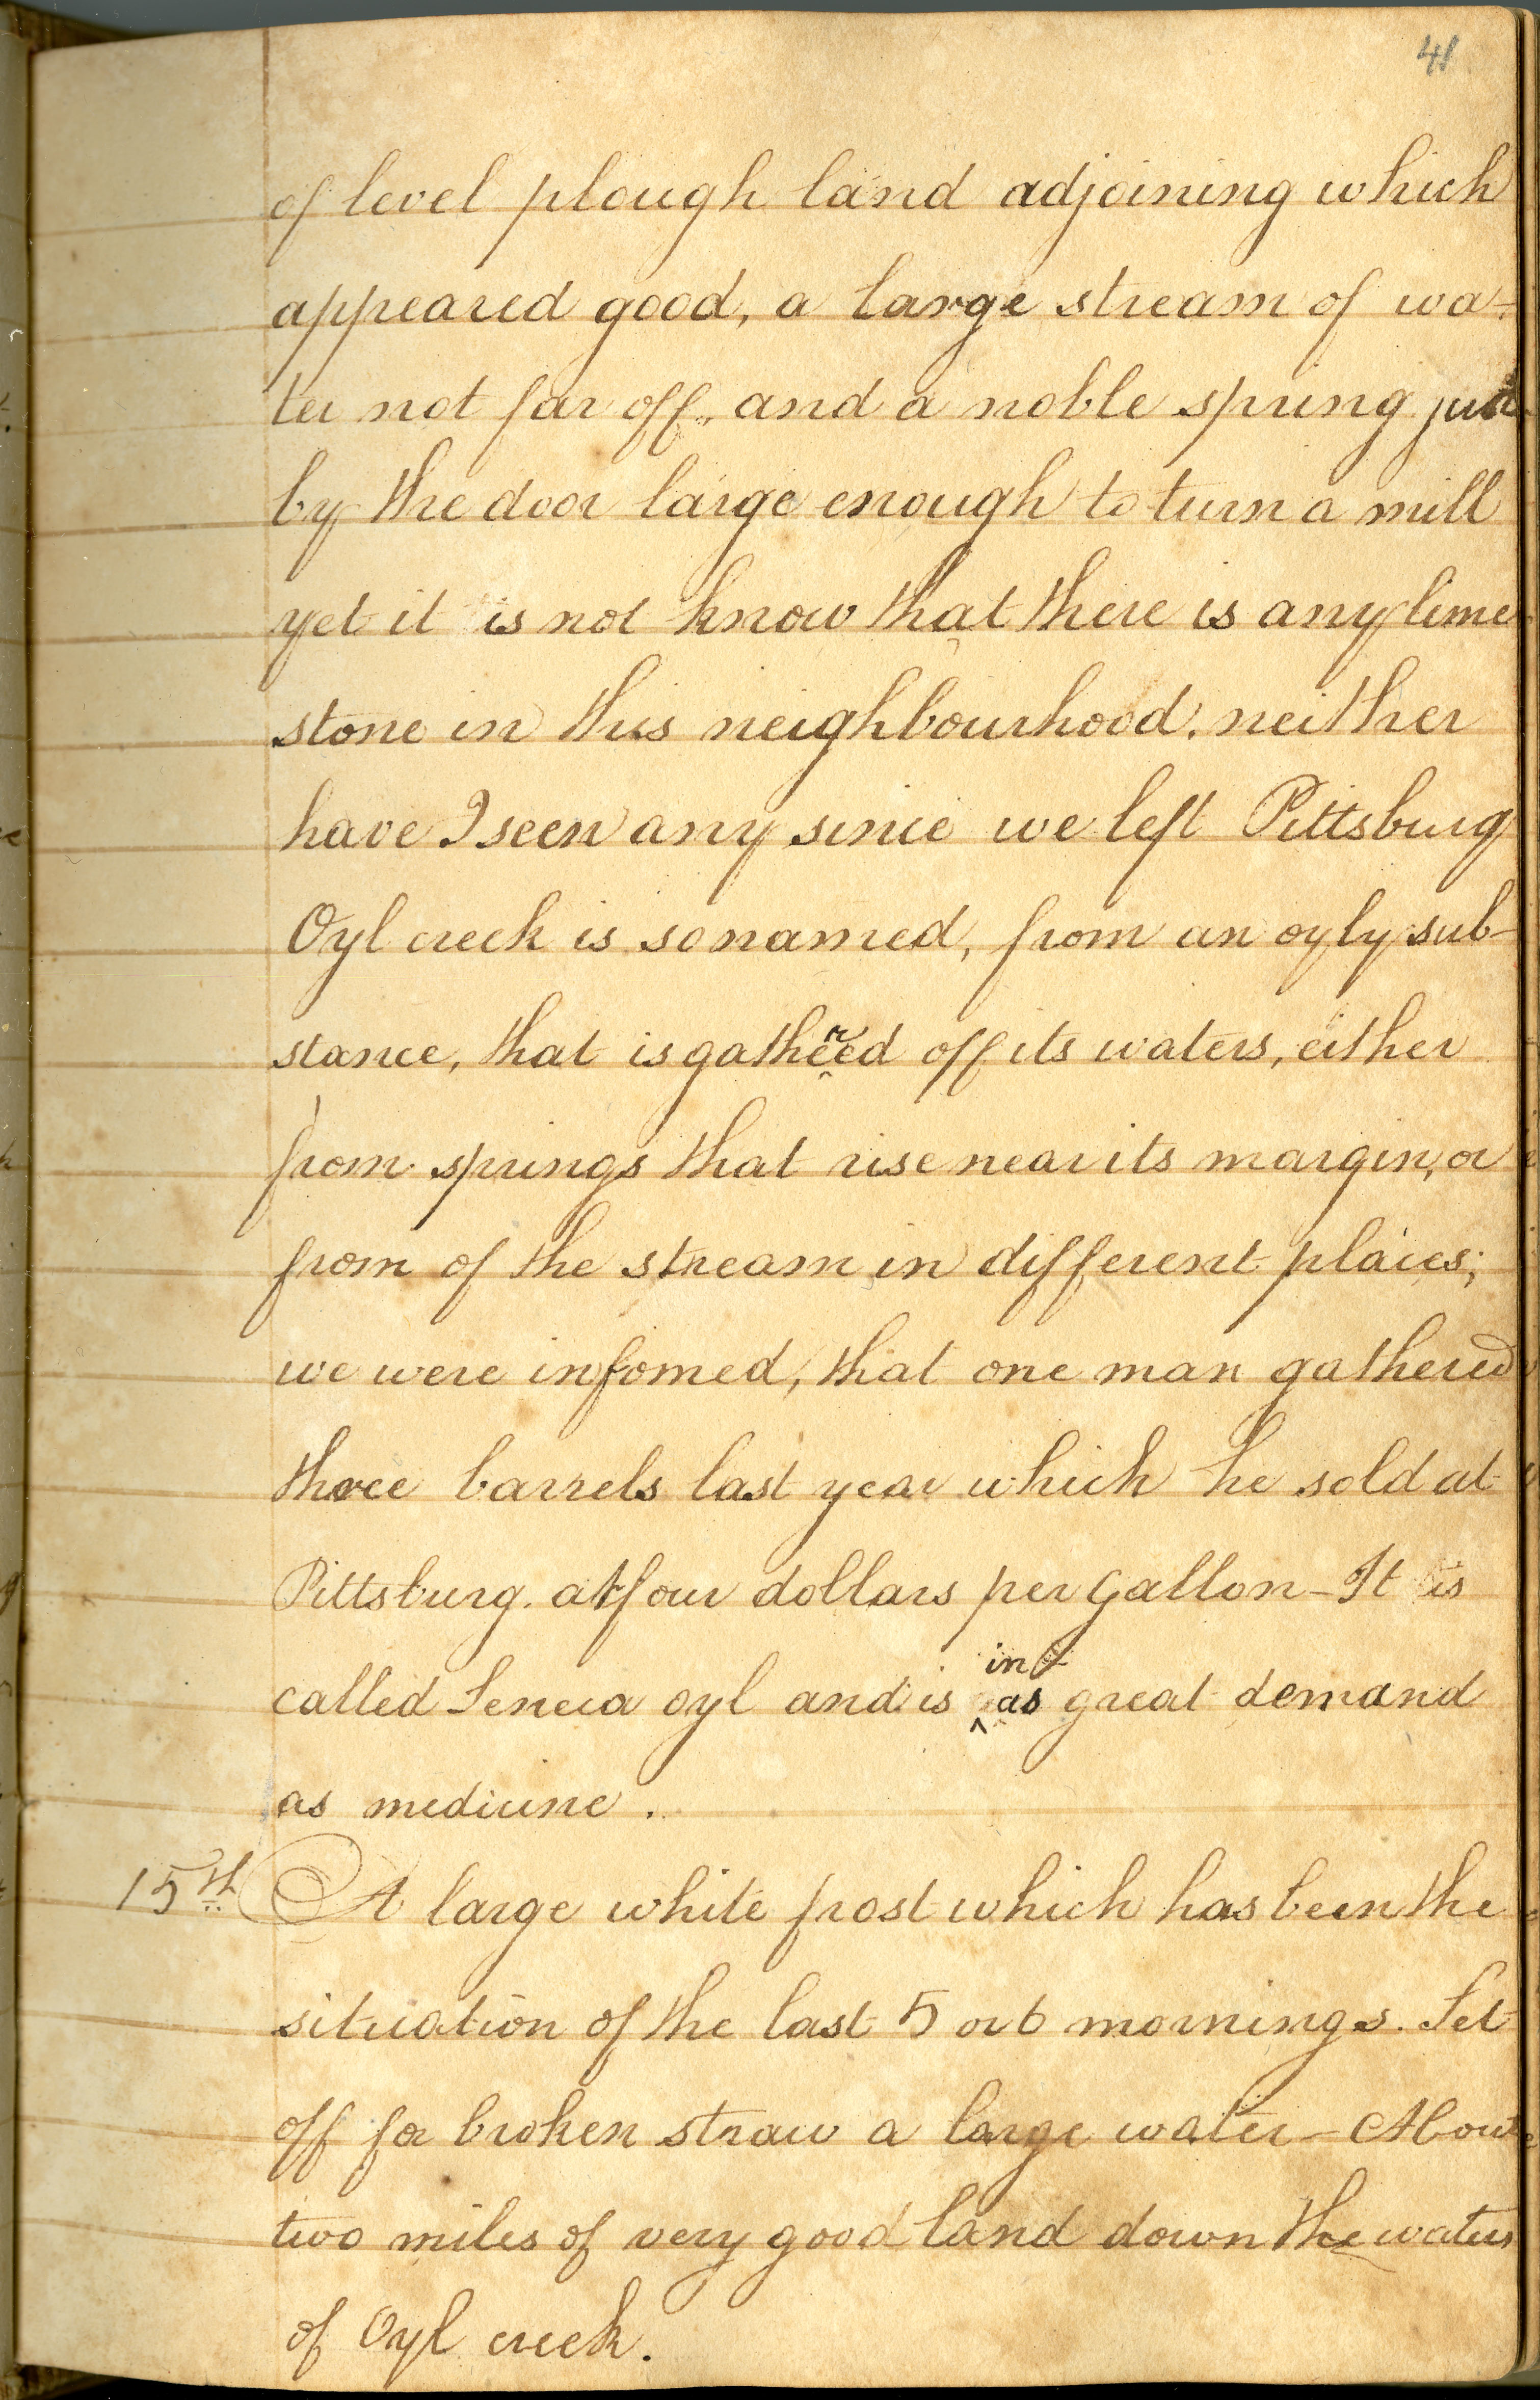 41
of level plough land adjoining which
appeared good, a large stream of wa-
ter not far off, and a noble spring just
by the door large enough to turn a mill
yet it is not know that there is any lime
stone in this neighbourhood. neither
have I seen any since we left Pittsburg
Oyl creek is so named, from an oyly sub-
stance, that is gathered off its waters, either
from springs that rise near its margin, or
from of the stream in different places;
we were infomed, that one man gathered
three barrels last year which he sold at
Pittsburg. at four dollars per Gallon - It is
called Seneca oyl and is in as great demand
as medicine.
15th A large white frost which has been the
situation of the last 5 or 6 mornings. Set
off for broken straw a large water - About
two miles of very good land down the waters
of Oyl creek.